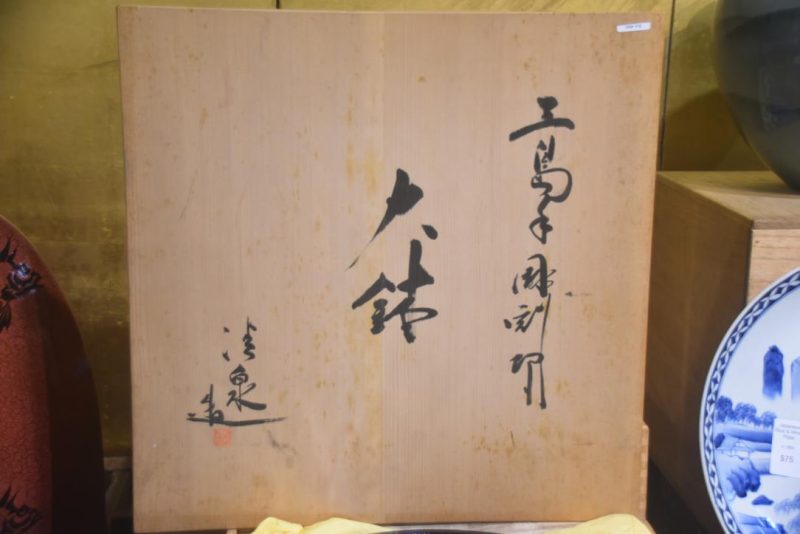 三島手彫刻
大鉢
清泉造
$75